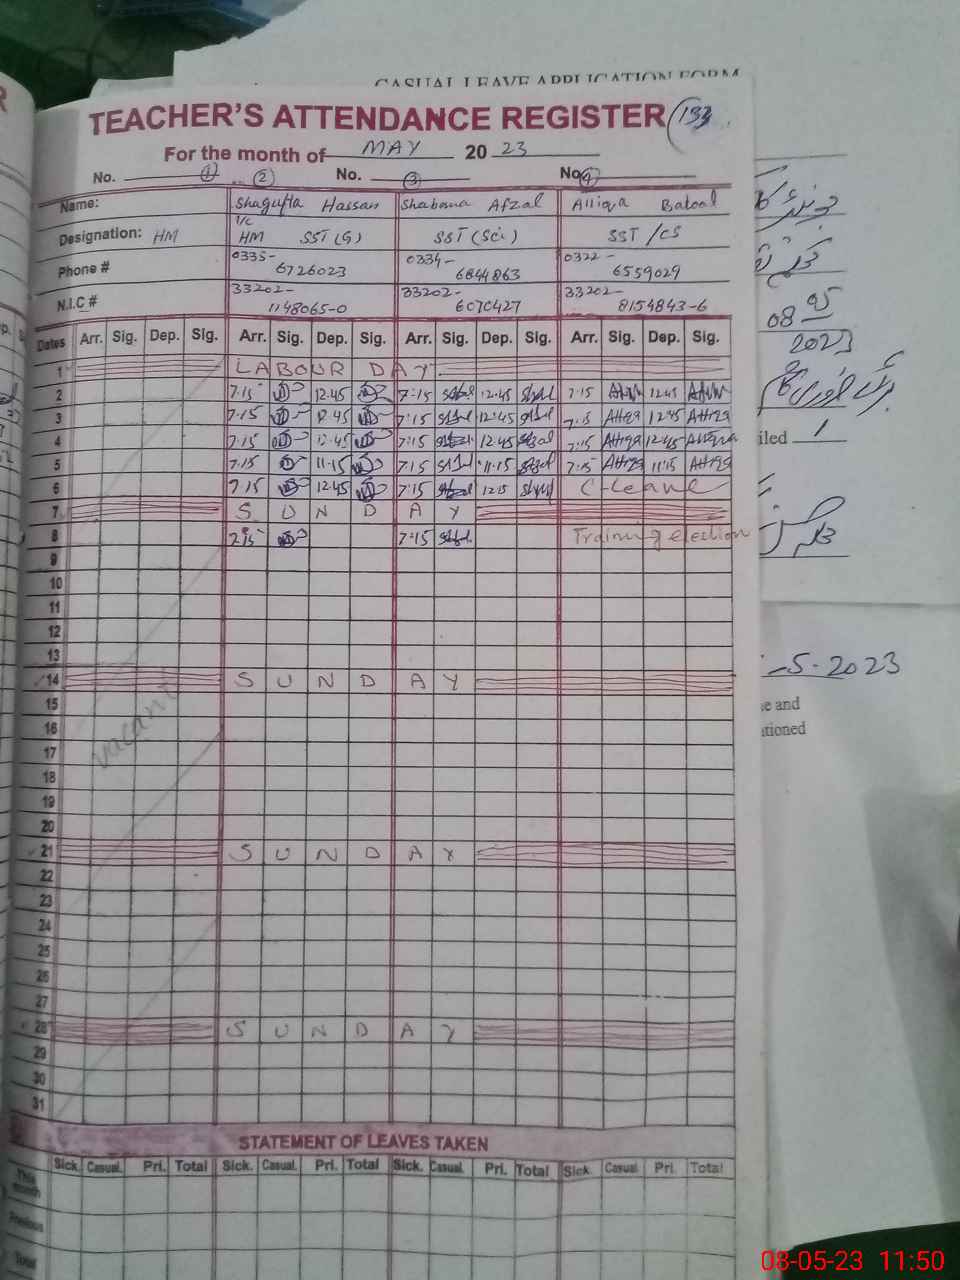 CASUAL LEAVE APPLICATION FORM
TEACHER'S ATTENDANCE REGISTER 133
For the month of MAY 20 23
No. 1 2 No. 3 No. 4
Name: Shagufta Hassan Shabana Afzal Attiqa Batool
Designation: HM I/C HM SST (G) SST (Sci) SST /CS
Phone # 0335-6726023 0334-6844863 0322-6559029
N.I.C # 33202-1148065-0 33202-6070427 33202-8154843-6
Dates Arr. Sig. Dep. Sig. Arr. Sig. Dep. Sig. Arr. Sig. Dep. Sig. Arr. Sig. Dep. Sig.
1 LABOUR DAY
2 7.15 12.45 7:15 12.45 7.15 12.45
3 7.15 12.45 7:15 12:45 7.15 12.45 Attiqa
4 7.15 12.45 7:15 12.45 7:15 Attiqa 12.45 Attiqa
5 7.15 11.15 7.15 11.15 7:15 Attiqa 11.15 Attiqa
6 7.15 12.45 7.15 12.15 C-Leave
7 SUNDAY
8 7.15 7:15 Training election
9
10
11
12
13
14 SUNDAY
15
16
17
18
19
20
21 SUNDAY
22
23
24
25
26
27
28 SUNDAY
29
30
31
vacant
STATEMENT OF LEAVES TAKEN
Sick. Casual. Pri. Total Sick. Casual. Pri. Total Sick. Casual. Pri. Total Sick. Casual Pri. Total
This month
Previous
Total
08 05
2023
iled 1
-5-2023
e and
tioned
08-05-23 11:50